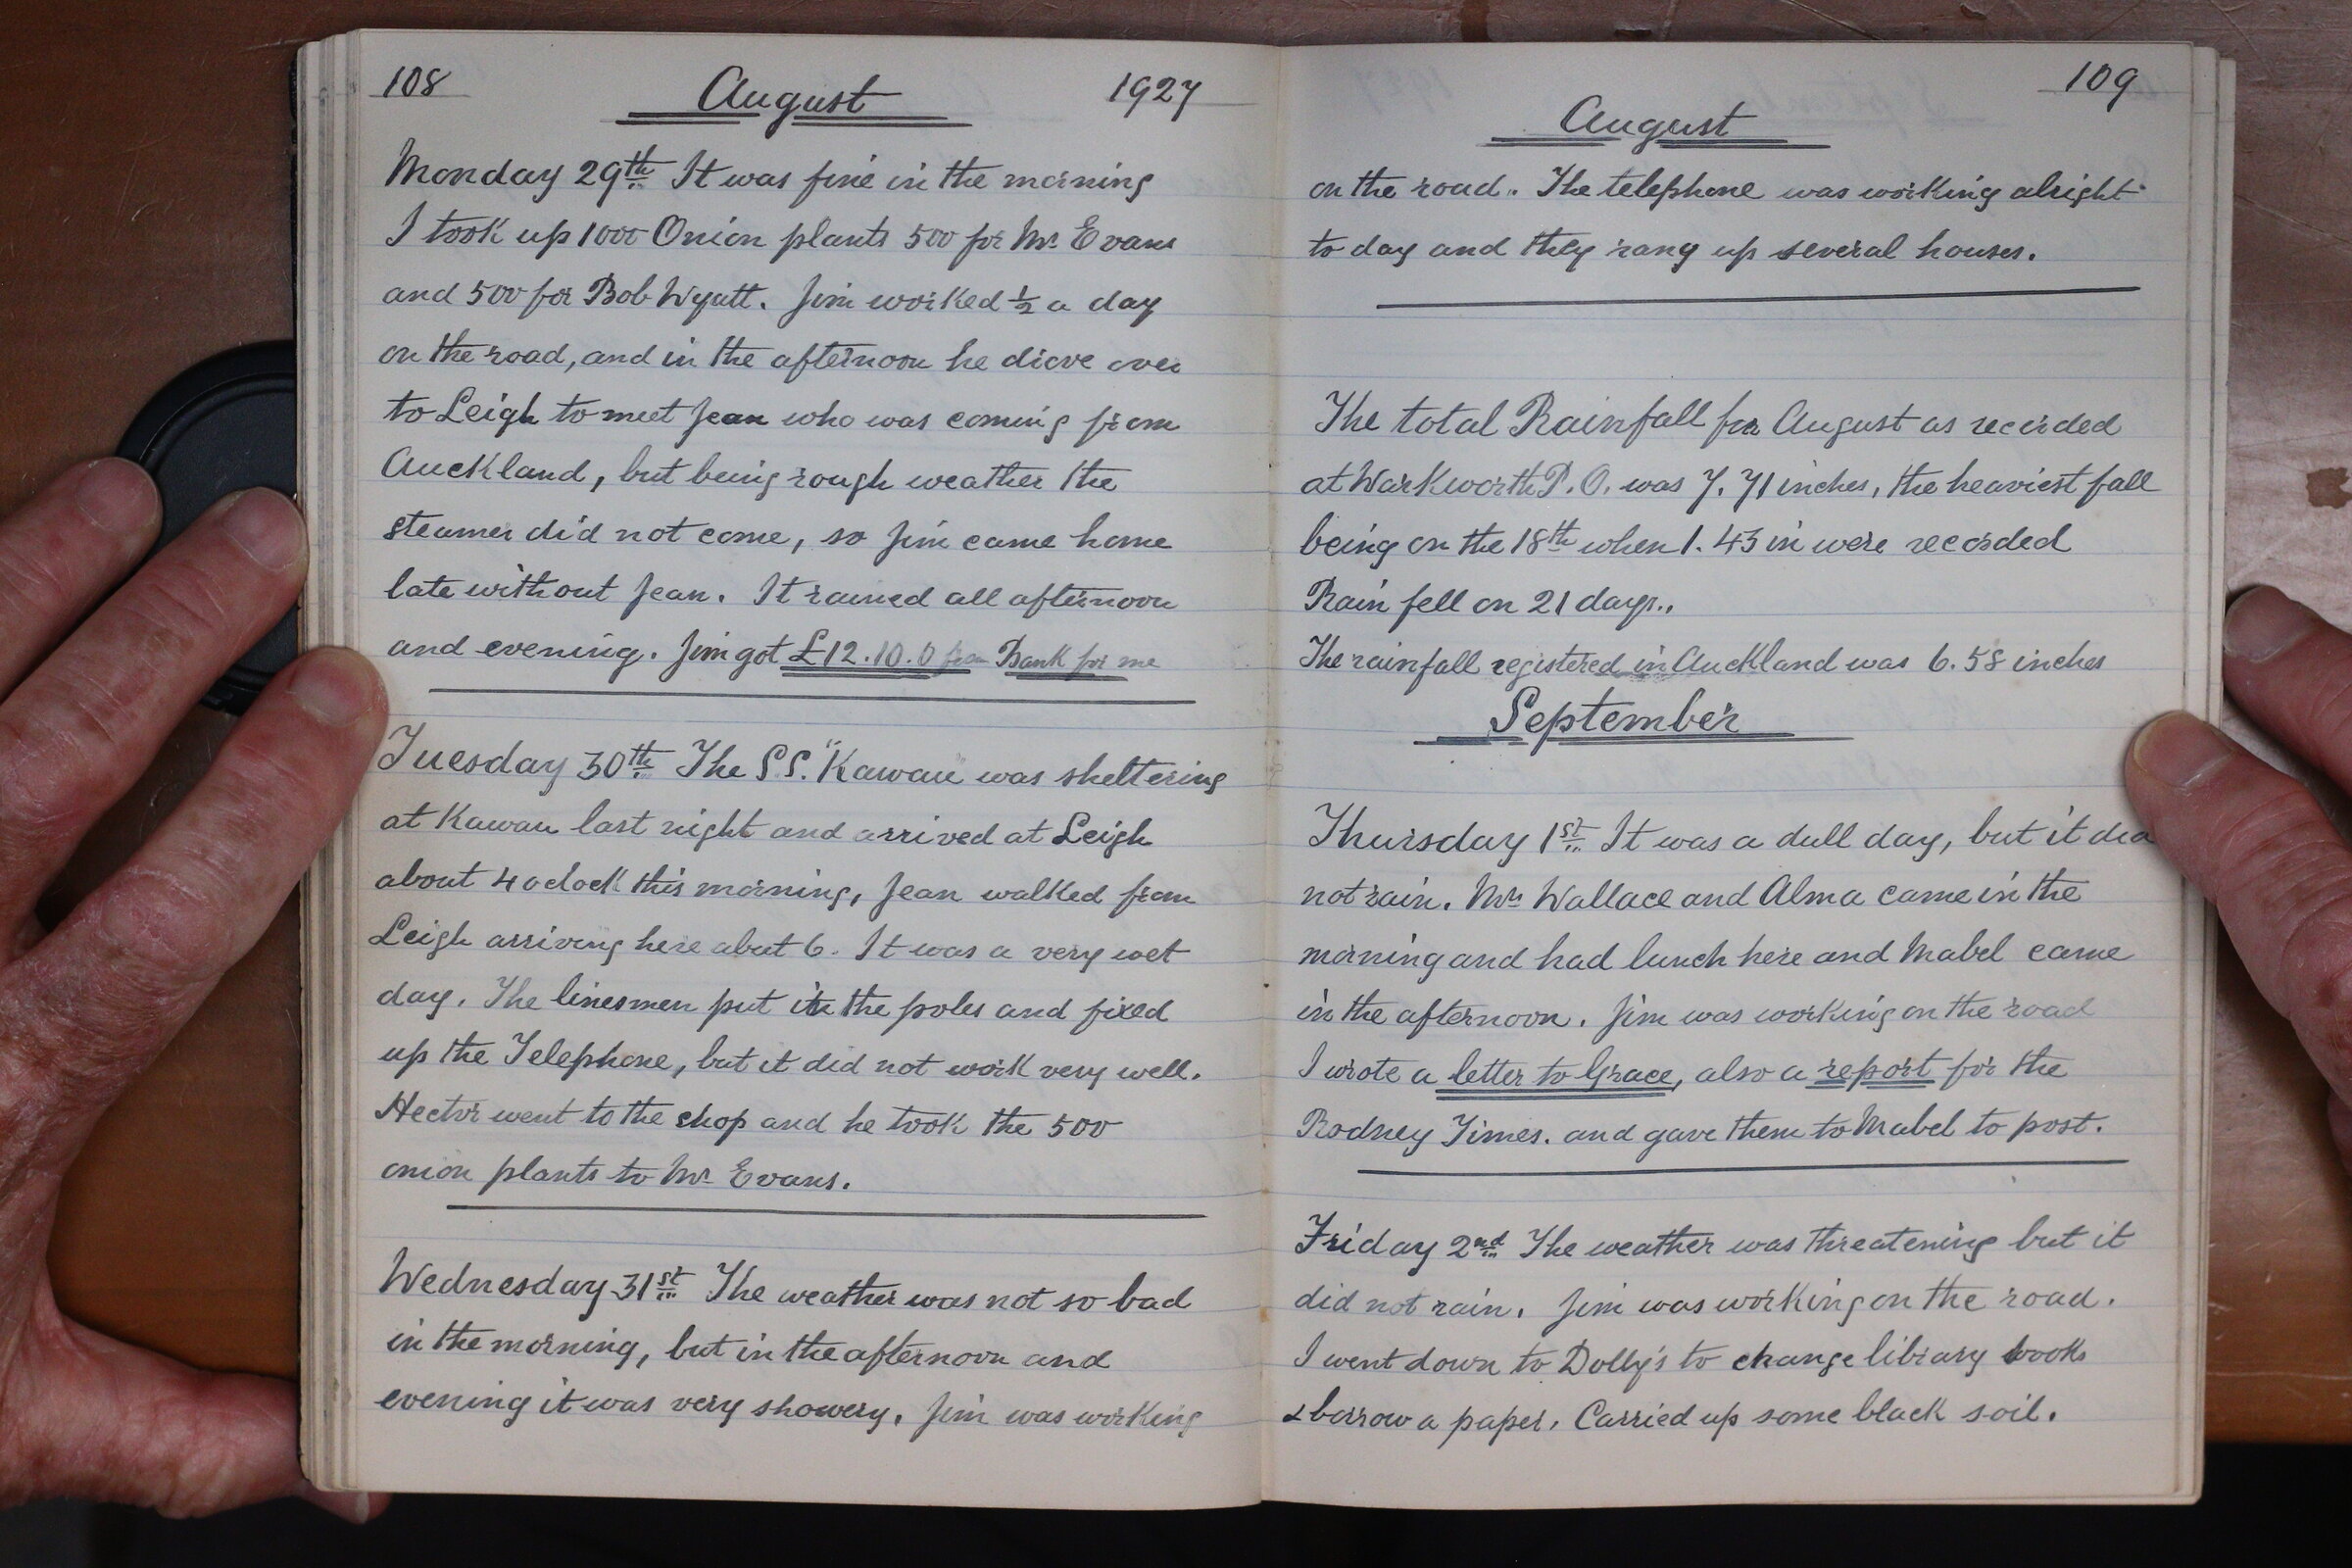 108 August 1927
Monday 29th It was fine in the morning
I took up 1000 Onion plants 500 for Mr Evans
and 500 for Bob Wyatt. Jim worked ½ a day
on the road, and in the afternoon he drove over
to Leigh to meet Jean who was coming from
Auckland, but being rough weather the
steamer did not come, so Jim came home
late without Jean. It rained all afternoon
and evening. Jim got £12.10.0 from Bank for me
Tuesday 30th The S.S. "Kawau" was sheltering
at Kawau last night and arrived at Leigh
about 4 oclock this morning, Jean walked from
Leigh arriving here abut 6. It was a very wet
day. The linesmen put in the poles and fixed
up the Telephone, but it did not work very well.
Hector went to the shop and he took the 500
onion plants to Mr Evans.
Wednesday 31st The weather was not so bad
in the morning, but in the afternoon and
evening it was very showery. Jim was working
109
August
on the road. The telephone was working alright
to day and they rang up several houses.
The total Rainfall for August as recorded
at Warkworth P.O. was 7.71 inches, the heaviest fall
being on the 18th when 1.43 in were recorded
Rain fell on 21 days.,
The rainfall registered in Auckland was 6.58 inches
September
Thursday 1st It was a dull day, but it did
not rain. Mrs Wallace and Alma came in the
morning and had lunch here and Mabel came
in the afternoon. Jim was working on the road
I wrote a letter to Grace, also a report for the
Rodney Times. and gave them to Mabel to post.
Friday 2nd The weather was threatening but it
did not rain. Jim was working on the road.
I went down to Dolly's to change library books
& borrow a paper. Carried up some black soil.